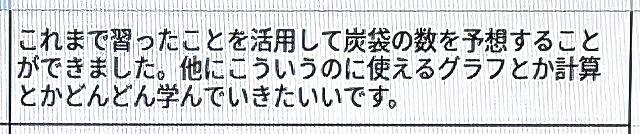 これまで習ったことを活用して炭袋の数を予想すること
ができました。他にこういうのに使えるグラフとか計算
とかどんどん学んでいきたいいです。